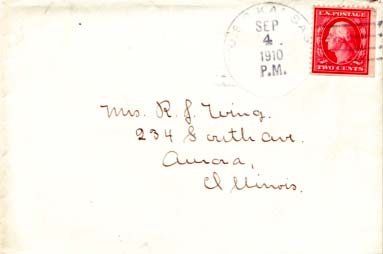 KANSAS
SEP
4
1910
P.M.
U.S. POSTAGE
TWO CENTS
Mrs. R. J. Wing.
234 South Ave.
Aurora,
Illinois.